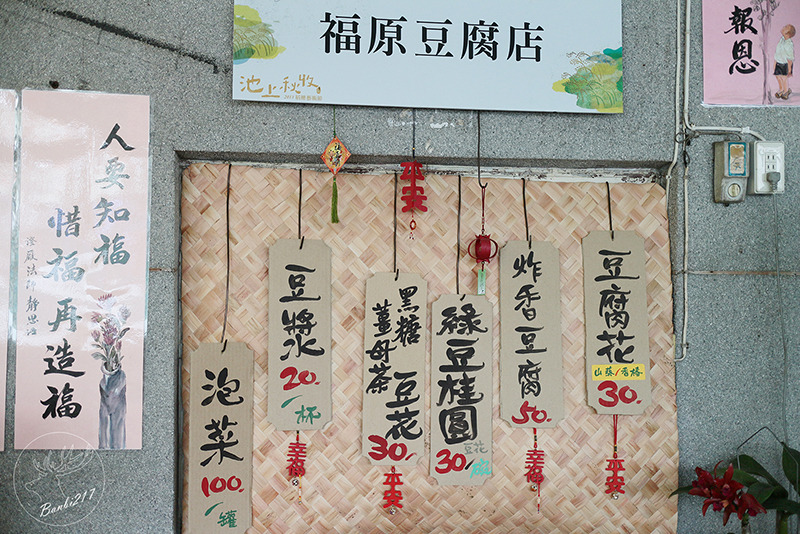 福原豆腐店
池上秋收
報恩
豆腐花
山葵/香椿
30.
平安
炸香豆腐
50.
幸福
綠豆桂圓
豆花
30/碗
平安
黑糖
薑母茶
豆花
30.
平安
豆漿
20.
/杯
幸福
泡菜
100.
/罐
人要知福
惜福再造福
法師 靜思
Banbi217